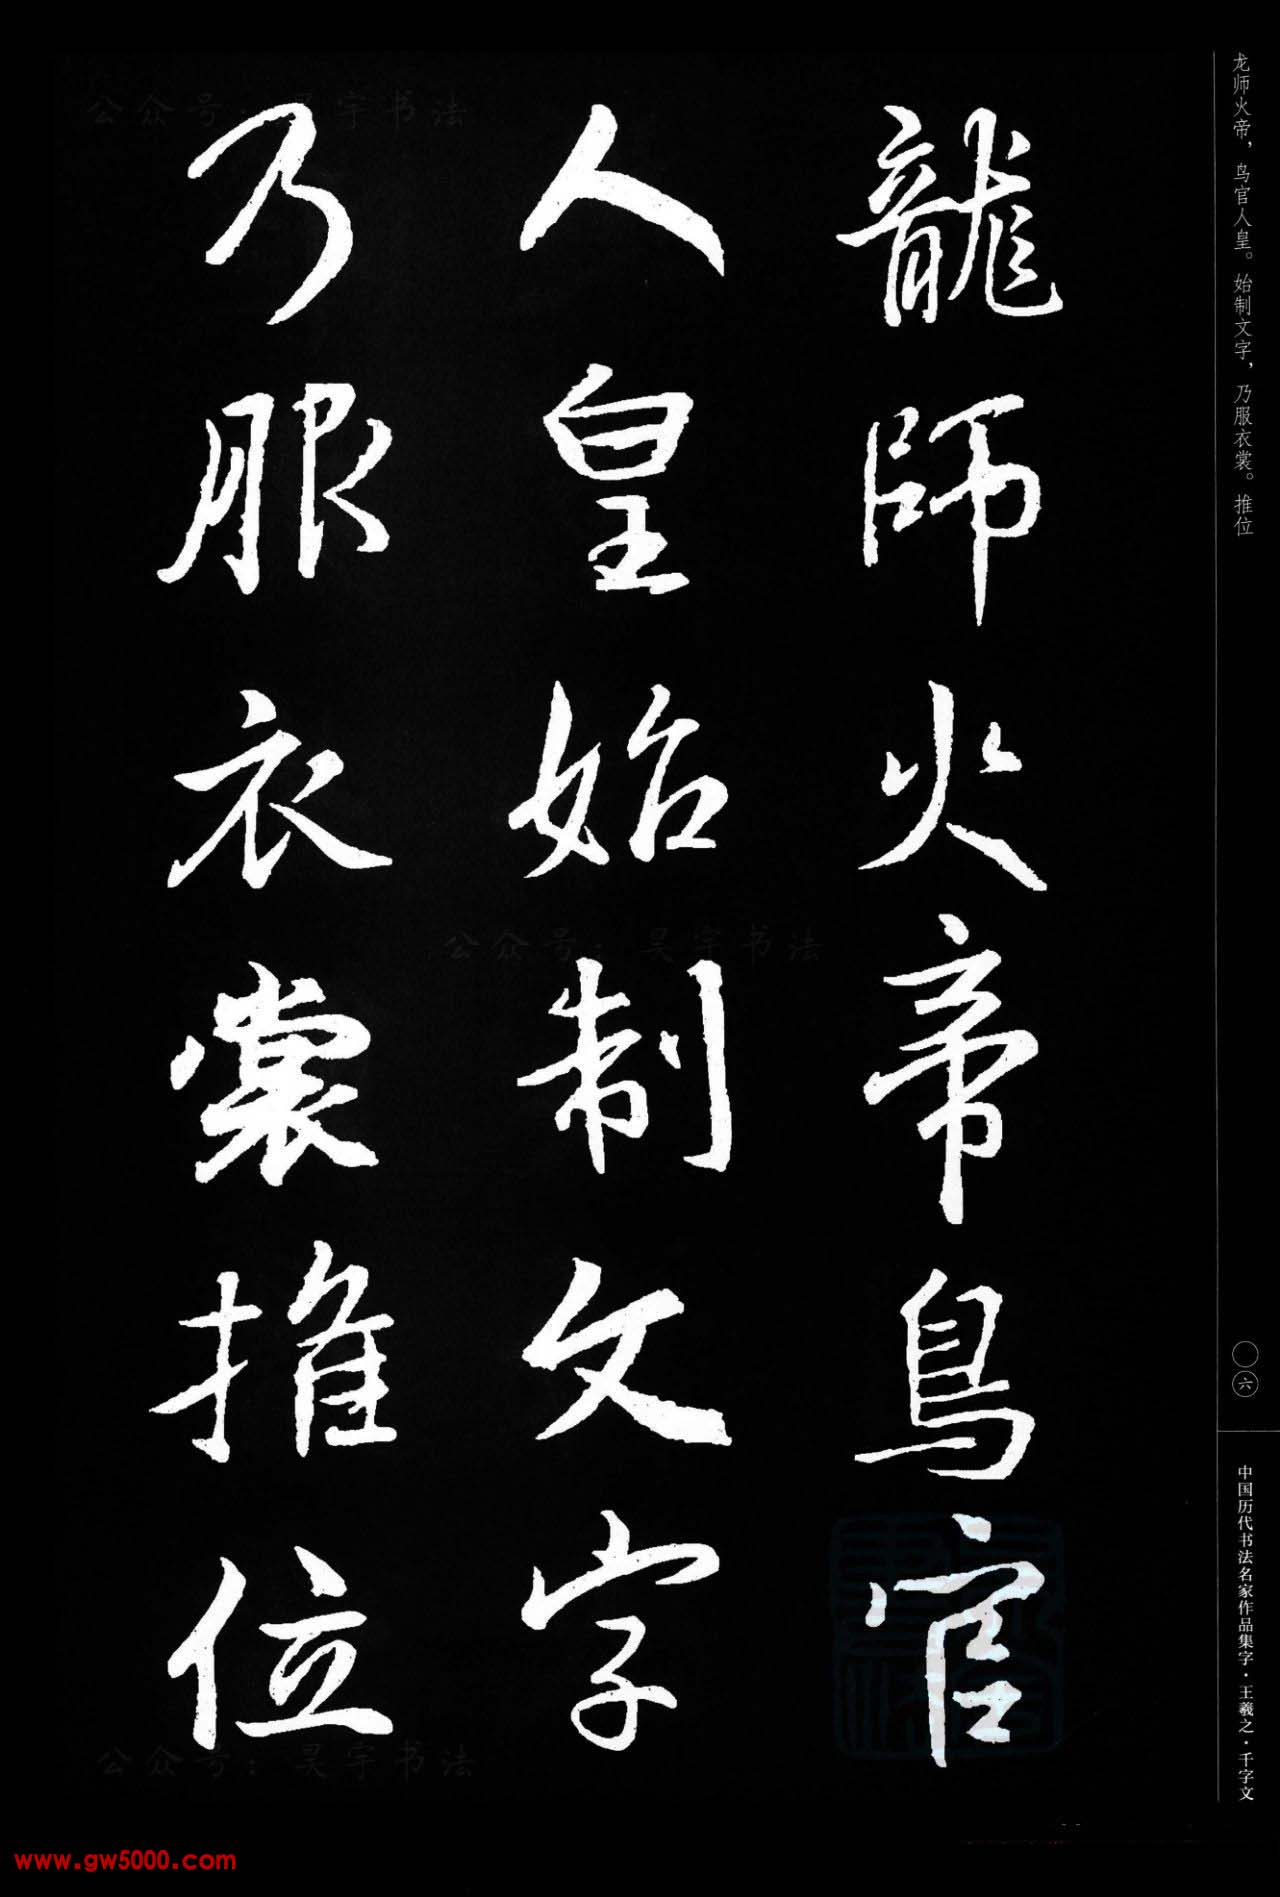 龙师火帝，鸟官人皇。始制文字，乃服衣裳。推位
龍師火帝鳥官
人皇始制文字
乃服衣裳推位
〇六
中国历代书法名家作品集字·王羲之·千字文
公众号：昊宇书法
公众号：昊宇书法
公众号：昊宇书法
www.gw5000.com